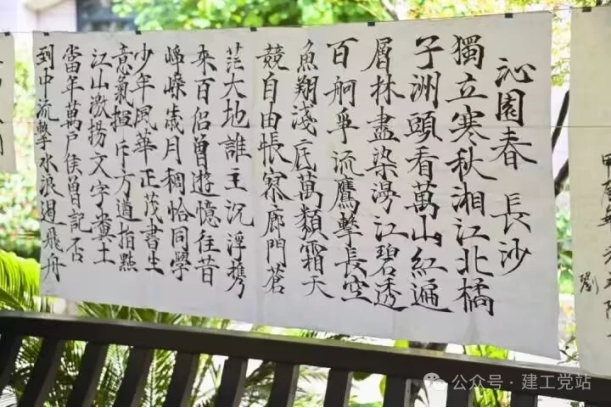 沁園春 長沙
獨立寒秋湘江北橘
子洲頭看萬山紅遍
層林盡染漫江碧透
百舸爭流鷹擊長空
魚翔淺底萬類霜天
競自由悵寥廓問蒼
茫大地誰主沉浮攜
來百侶曾遊憶往昔
崢嶸歲月稠恰同學
少年風華正茂書生
意氣揮斥方遒指點
江山激揚文字糞土
當年萬戶侯曾記否
到中流擊水浪遏飛舟
劉
公众号 · 建工党站